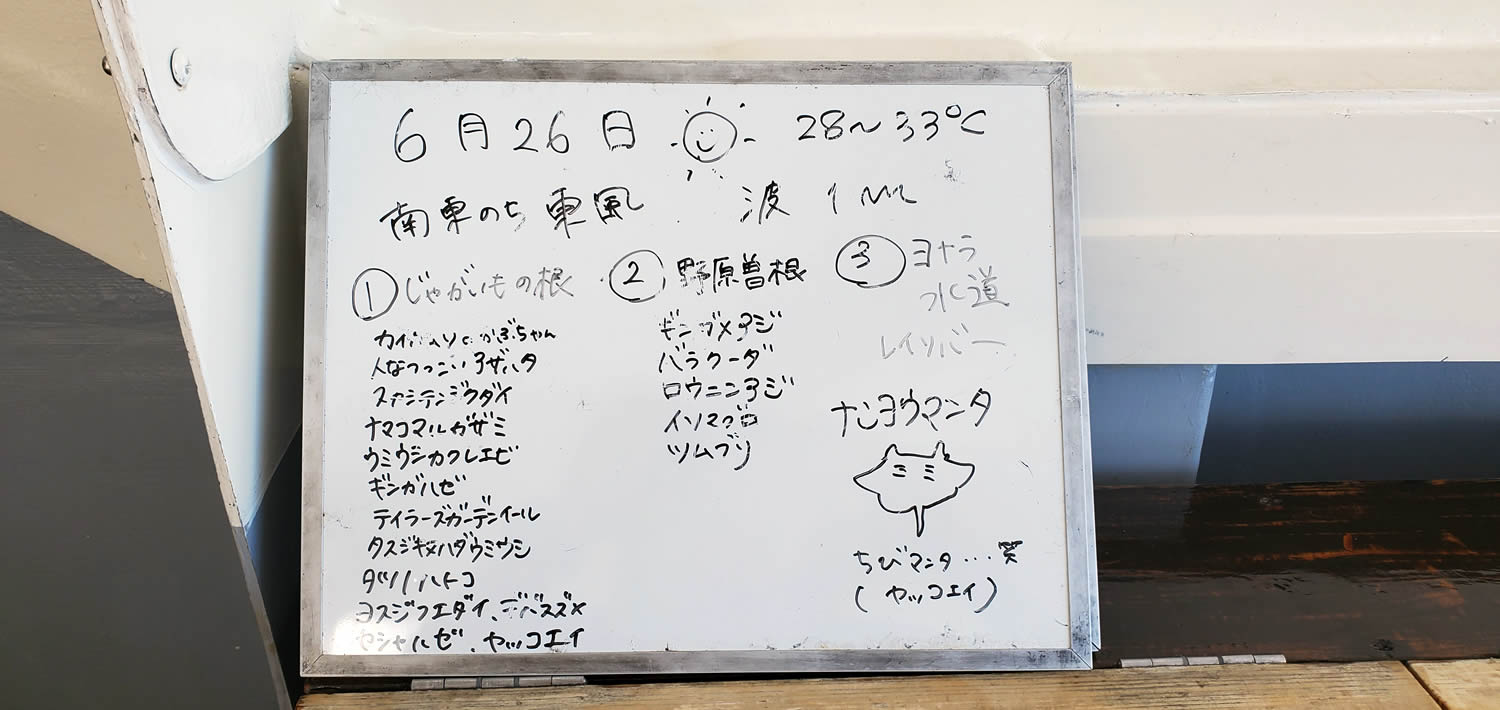 6月26日 28〜33℃
南東のち東風 波1m
① じゃがいもの根
カイカムリのかぶちゃん
人なつっこいアザハタ
スカシテンジクダイ
ナマコマルガザミ
ウミウシカクレエビ
ギンガハゼ
テイラーズガーデンイール
タスジキヌハダウミウシ
ダツノハトコ
ヨスジフエダイ、デバスズメ
ヤシャハゼ、ヤッコエイ
② 野原曽根
ギンガメアジ
バラクーダ
ロウニンアジ
イソマグロ
ツムブリ
③ ヨナラ
水道
レインバー
ナンヨウマンタ
ちびマンタ…笑
(ヤッコエイ)